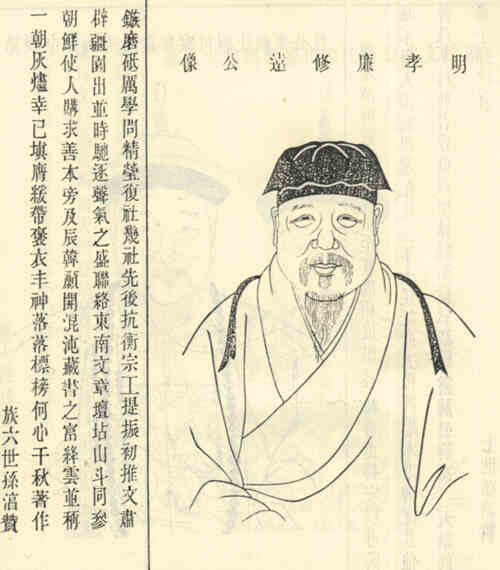 明孝廉修遠公像
鏃磨砥厲學問精瑩復社幾社先後抗衡宗工提振初推文肅
辟疆園出並時馳逐聲氣之盛聯絡東南文章壇坫山斗同參
朝鮮使人購求善本旁及辰韓顧開混沌藏書之富絳雲並稱
一朝灰燼幸已填膺緩帶褒衣丰神落落標榜何心千秋著作
族六世孫贊